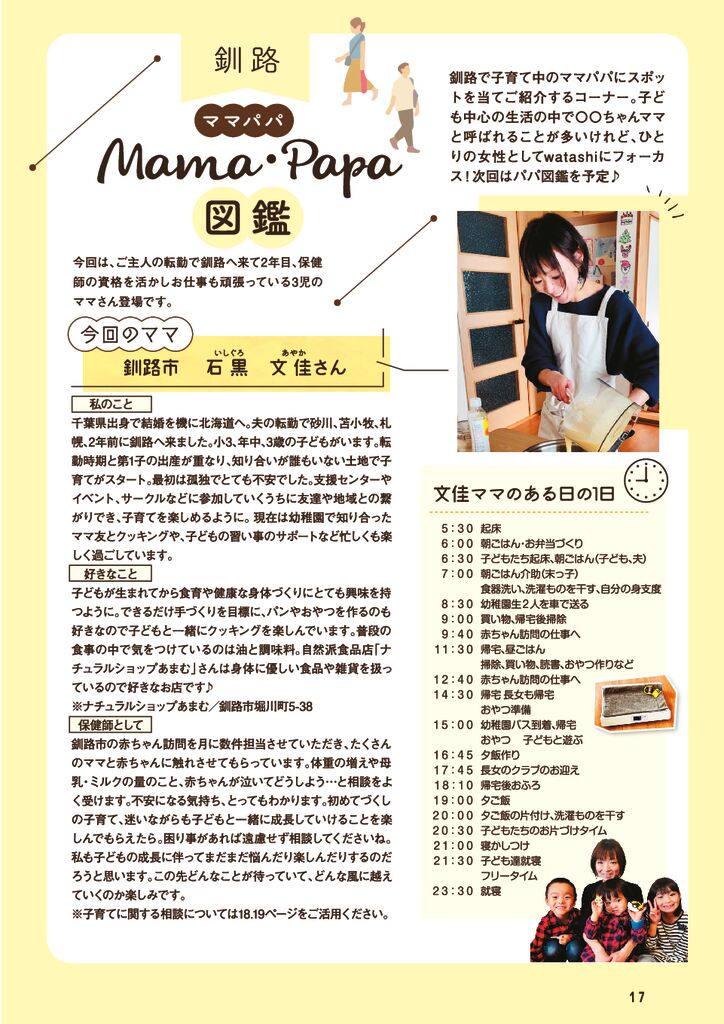 釧路
ママパパ
Mama・Papa
図鑑
釧路で子育て中のママパパにスポッ
トを当てご紹介するコーナー。子ど
も中心の生活の中で〇〇ちゃんママ
と呼ばれることが多いけれど、ひと
りの女性としてwatashiにフォーカ
ス!次回はパパ図鑑を予定♪
今回は、ご主人の転勤で釧路へ来て2年目、保健
師の資格を活かしお仕事も頑張っている3児の
ママさん登場です。
今回のママ
いしぐろ あやか
釧路市 石黒 文佳さん
私のこと
千葉県出身で結婚を機に北海道へ。夫の転勤で砂川、苫小牧、札
幌、2年前に釧路へ来ました。小3、年中、3歳の子どもがいます。転
勤時期と第1子の出産が重なり、知り合いが誰もいない土地で子
育てがスタート。最初は孤独でとても不安でした。支援センターや
イベント、サークルなどに参加していくうちに友達や地域との繋
がりでき、子育てを楽しめるように。現在は幼稚園で知り合った
ママ友とクッキングや、子どもの習い事のサポートなど忙しくも楽
しく過ごしています。
好きなこと
子どもが生まれてから食育や健康な身体づくりにとても興味を持
つように。できるだけ手づくりを目標に、パンやおやつを作るのも
好きなので子どもと一緒にクッキングを楽しんでいます。普段の
食事の中で気をつけているのは油と調味料。自然派食品店「ナ
チュラルショップあまむ」さんは身体に優しい食品や雑貨を扱っ
ているので好きなお店です♪
※ナチュラルショップあまむ/釧路市堀川町5-38
保健師として
釧路市の赤ちゃん訪問を月に数件担当させていただき、たくさん
のママと赤ちゃんに触れさせてもらっています。体重の増えや母
乳・ミルクの量のこと、赤ちゃんが泣いてどうしよう…と相談をよ
く受けます。不安になる気持ち、とってもわかります。初めてづくし
の子育て、迷いながらも子どもと一緒に成長していけることを楽
しんでもらえたら。困り事があれば遠慮せず相談してくださいね。
私も子どもの成長に伴ってまだまだ悩んだり楽しんだりするのだ
ろうと思います。この先どんなことが待っていて、どんな風に越え
ていくのか楽しみです。
※子育てに関する相談については18.19ページをご活用ください。
文佳ママのある日の1日
5:30 起床
6:00 朝ごはん・お弁当づくり
6:30 子どもたち起床、朝ごはん(子ども、夫)
7:00 朝ごはん介助(末っ子)
食器洗い、洗濯ものを干す、自分の身支度
8:30 幼稚園生2人を車で送る
9:00 買い物、帰宅後掃除
9:40 赤ちゃん訪問の仕事へ
11:30 帰宅、昼ごはん
掃除、買い物、読書、おやつ作りなど
12:40 赤ちゃん訪問の仕事へ
14:30 帰宅 長女も帰宅
おやつ準備
15:00 幼稚園バス到着、帰宅
おやつ 子どもと遊ぶ
16:45 夕飯作り
17:45 長女のクラブのお迎え
18:10 帰宅後おふろ
19:00 夕ご飯
20:00 夕ご飯の片付け、洗濯ものを干す
20:30 子どもたちのお片づけタイム
21:00 寝かしつけ
21:30 子ども達就寝
フリータイム
23:30 就寝
17